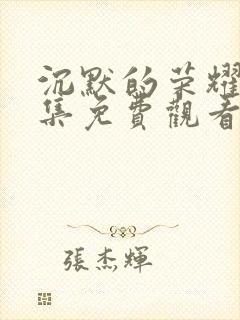 沉默的荣耀
集免費觀看
張杰輝